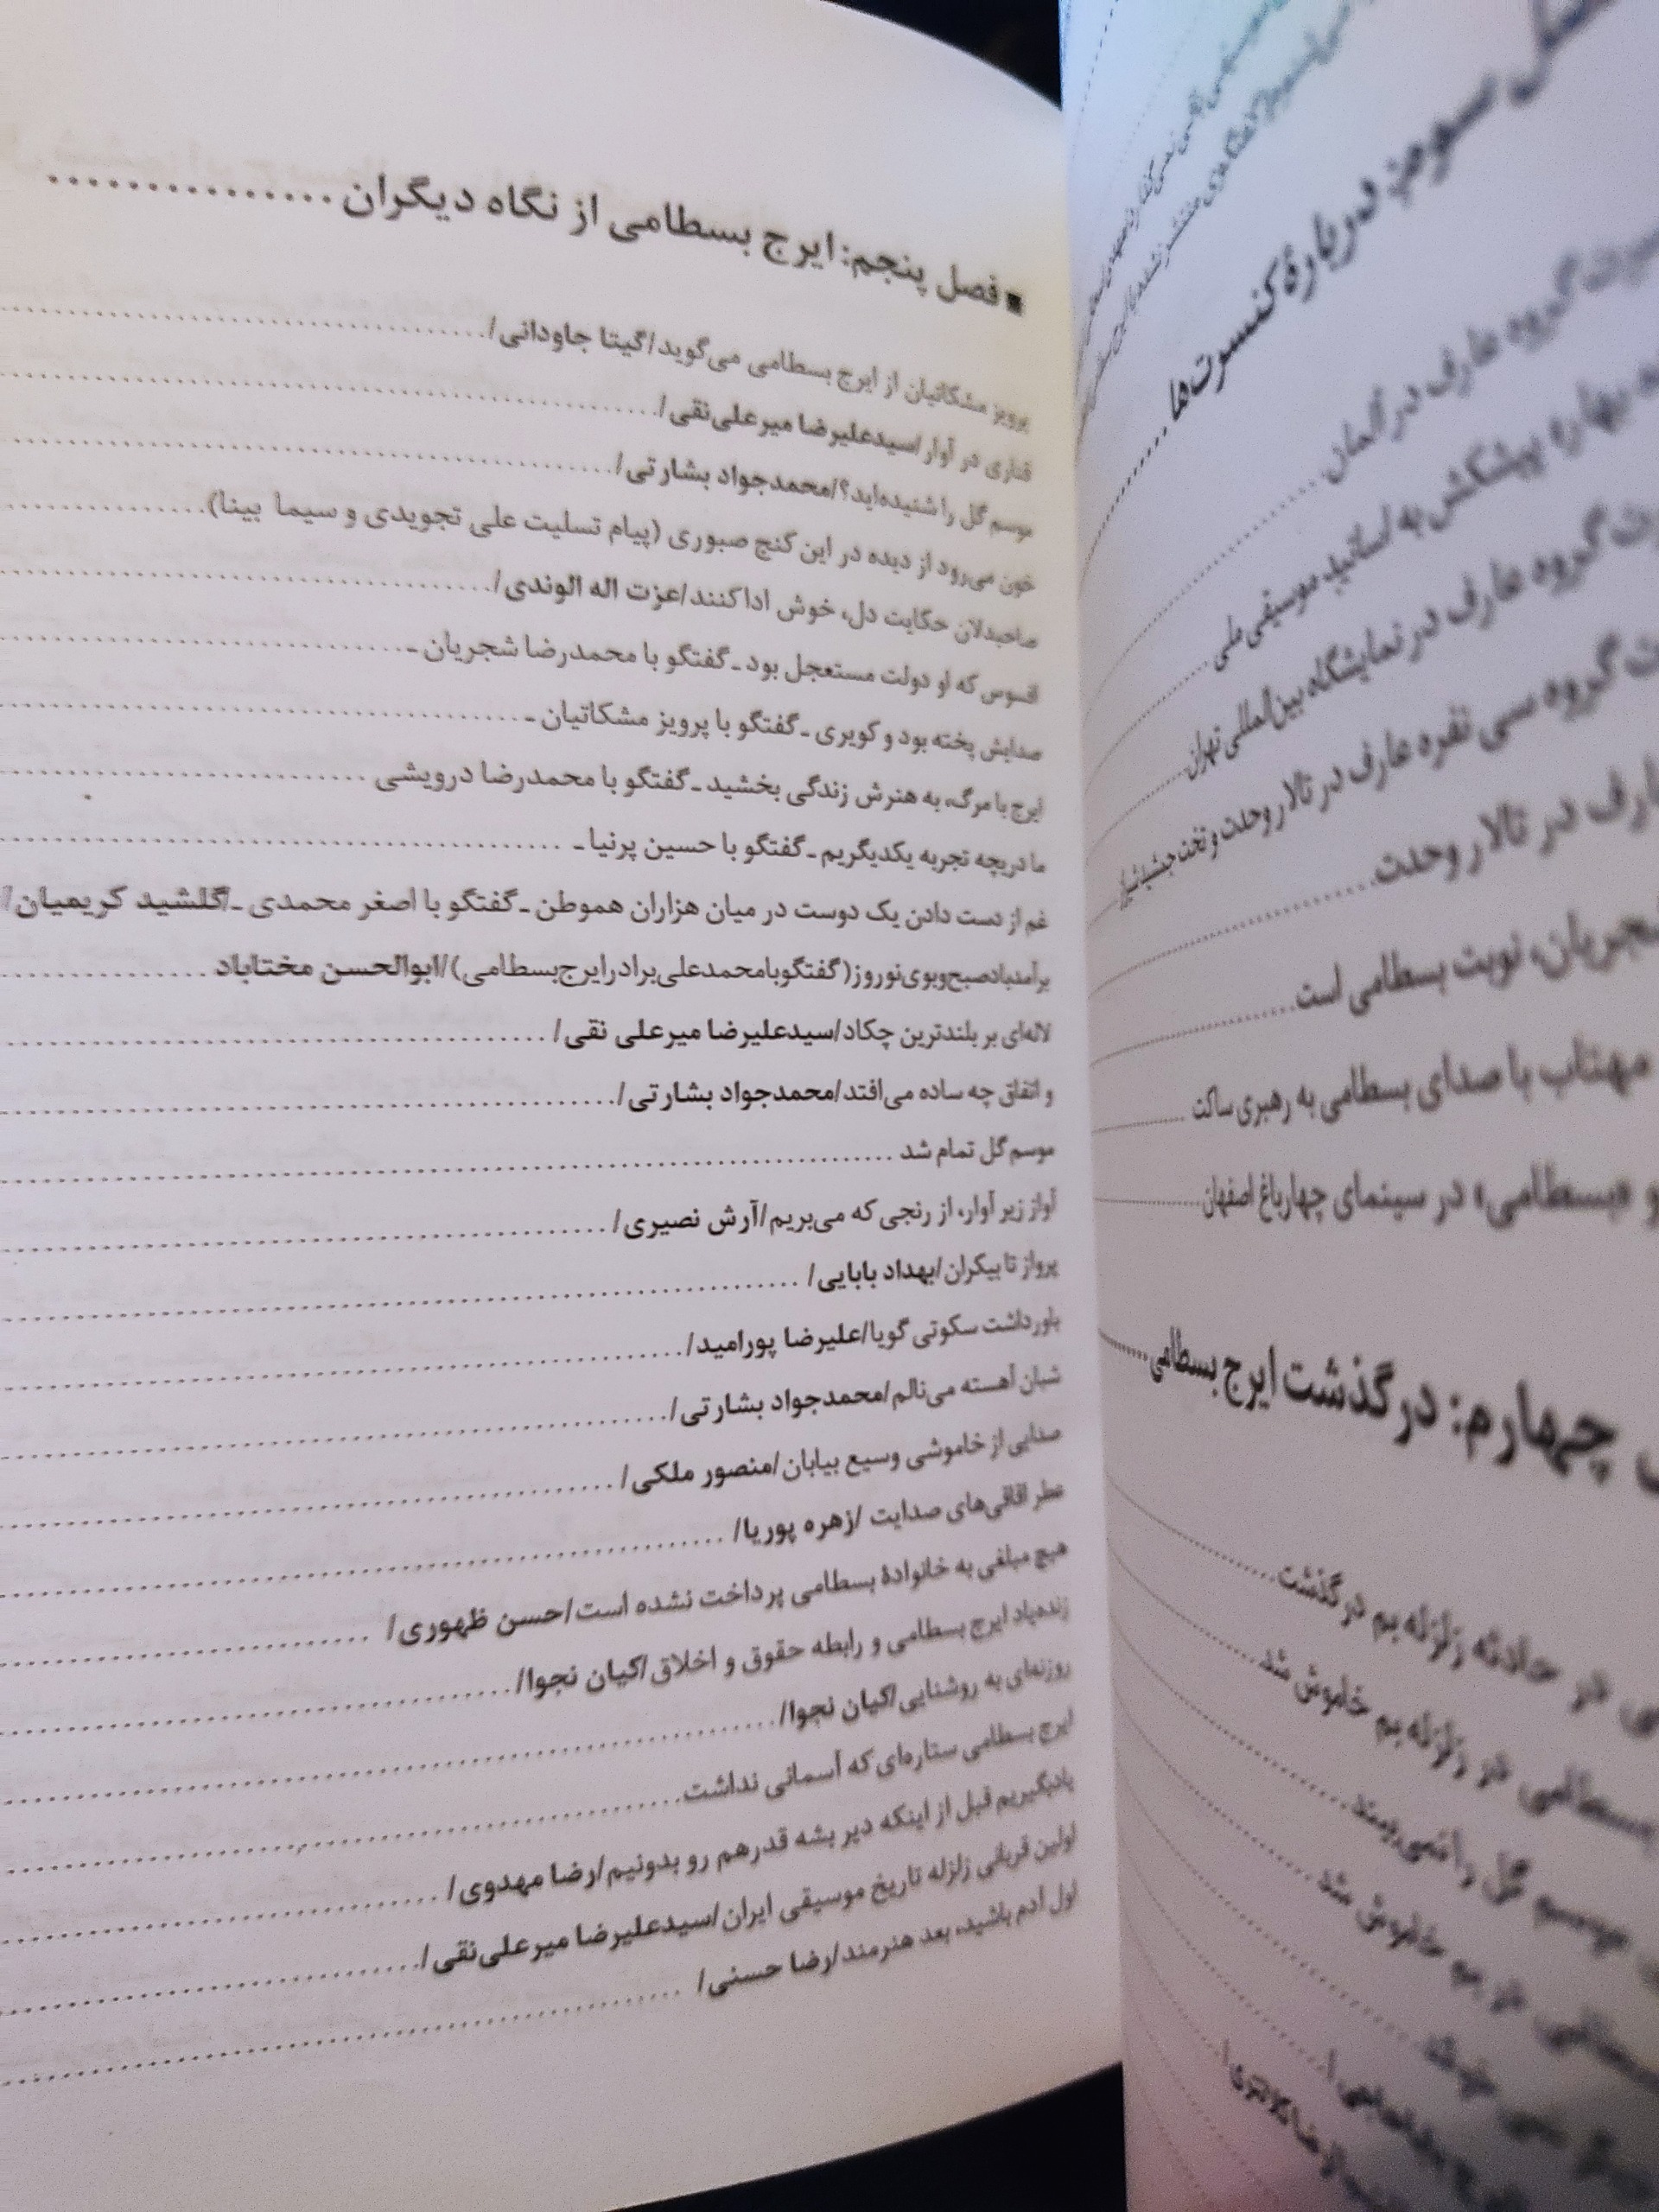 سومز: دربارهٔ کنسرت‌ها
گروه عارف در آلمان
بهاره پیشکش به اساتید موسیقی ملی
گروه عارف در نمایشگاه بین‌المللی تهران
گروه سی نفره عارف در تالار وحدت و تخت جمشید شیراز
عارف در تالار وحدت
شجریان، نوبت بسطامی است
مهتاب با صدای بسطامی به رهبری ساکت
و «بسطامی» در سینمای چهارباغ اصفهان
چهارم: درگذشت ایرج بسطامی
در حادثه زلزله بم درگذشت
بسطامی در زلزله بم خاموش شد
موسم گل را نمی‌بیند
در بم خاموش شد
■ فصل پنجم: ایرج بسطامی از نگاه دیگران
پرویز مشکاتیان از ایرج بسطامی می‌گوید/گیتا جاودانی/
قناری در آوار/سیدعلیرضا میرعلی‌نقی/
موسم گل را شنیده‌اید؟/محمدجواد بشارتی/
خون می‌رود از دیده در این کنج صبوری (پیام تسلیت علی تجویدی و سیما بینا)
صاحبدلان حکایت دل، خوش ادا کنند/عزت اله الوندی/
افسوس که او دولت مستعجل بود ـ گفتگو با محمدرضا شجریان ـ
صدایش پخته بود و کویری ـ گفتگو با پرویز مشکاتیان ـ
ایرج با مرگ، به هنرش زندگی بخشید ـ گفتگو با محمدرضا درویشی
ما دریچه تجربه یکدیگریم ـ گفتگو با حسین پرنیا ـ
غم از دست دادن یک دوست در میان هزاران هموطن ـ گفتگو با اصغر محمدی ـ/گلشید کریمیان/
برآمد باد صبح و بوی نوروز (گفتگو با محمدعلی برادر ایرج بسطامی)/ابوالحسن مختاباد
لاله‌ای بر بلندترین چکاد/سیدعلیرضا میرعلی نقی/
و اتفاق چه ساده می‌افتد/محمدجواد بشارتی/
موسم گل تمام شد
آواز زیر آوار، از رنجی که می‌بریم/آرش نصیری/
پرواز تا بیکران/بهداد بابایی/
باورداشت سکوتی گویا/علیرضا پورامید/
شبان آهسته می‌نالم/محمدجواد بشارتی/
صدایی از خاموشی وسیع بیابان/منصور ملکی/
عطر اقاقی‌های صدایت /زهره پوریا/
هیچ مبلغی به خانوادهٔ بسطامی پرداخت نشده است/حسن ظهوری/
زنده‌یاد ایرج بسطامی و رابطه حقوق و اخلاق/کیان نجوا/
روزنه‌ای به روشنایی/کیان نجوا/
ایرج بسطامی ستاره‌ای که آسمانی نداشت
یادبگیریم قبل از اینکه دیر بشه قدرهم رو بدونیم/رضا مهدوی/
اولین قربانی زلزله تاریخ موسیقی ایران/سیدعلیرضا میرعلی‌نقی/
اول آدم باشید، بعد هنرمند/رضا حسنی/